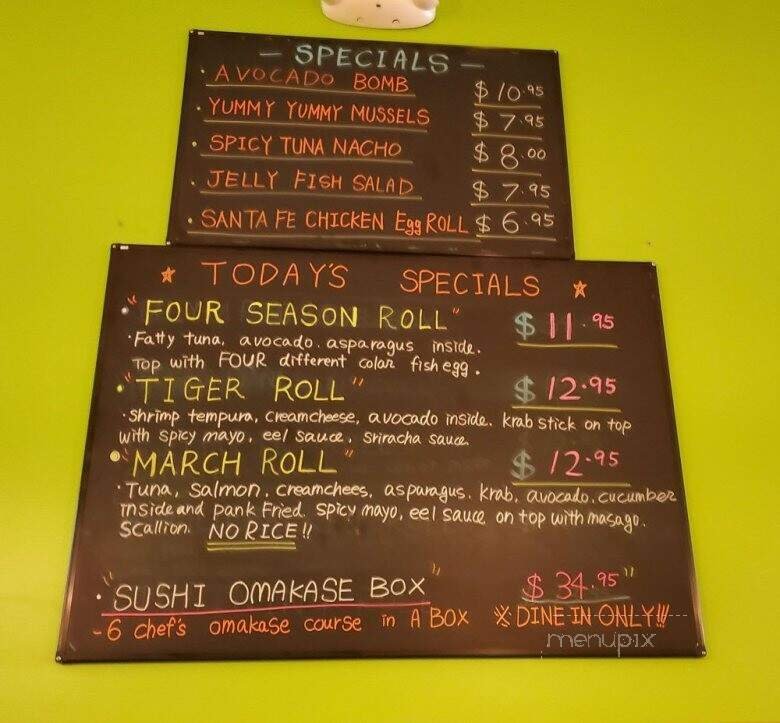 - SPECIALS -
· AVOCADO BOMB $10.95
· YUMMY YUMMY MUSSELS $7.95
· SPICY TUNA NACHO $8.00
· JELLY FISH SALAD $7.95
· SANTA FE CHICKEN Egg ROLL $6.95
☆ TODAY'S SPECIALS ☆
· "FOUR SEASON ROLL" $11.95
· Fatty tuna, avocado. asparagus inside.
Top with FOUR different color fish egg.
· "TIGER ROLL" $12.95
· Shrimp tempura, creamcheese, avocado inside. krab stick on top
with spicy mayo, eel sauce, sriracha sauce.
· "MARCH ROLL" $12.95
· Tuna, Salmon, creamchees, asparagus, krab, avocado, cucumber
inside and pank Fried. spicy mayo, eel sauce on top with masago.
Scallion. NO RICE!!
· "SUSHI OMAKASE BOX" $34.95"
- 6 chef's omakase course in A BOX ※ DINE IN ONLY!!!
menupix